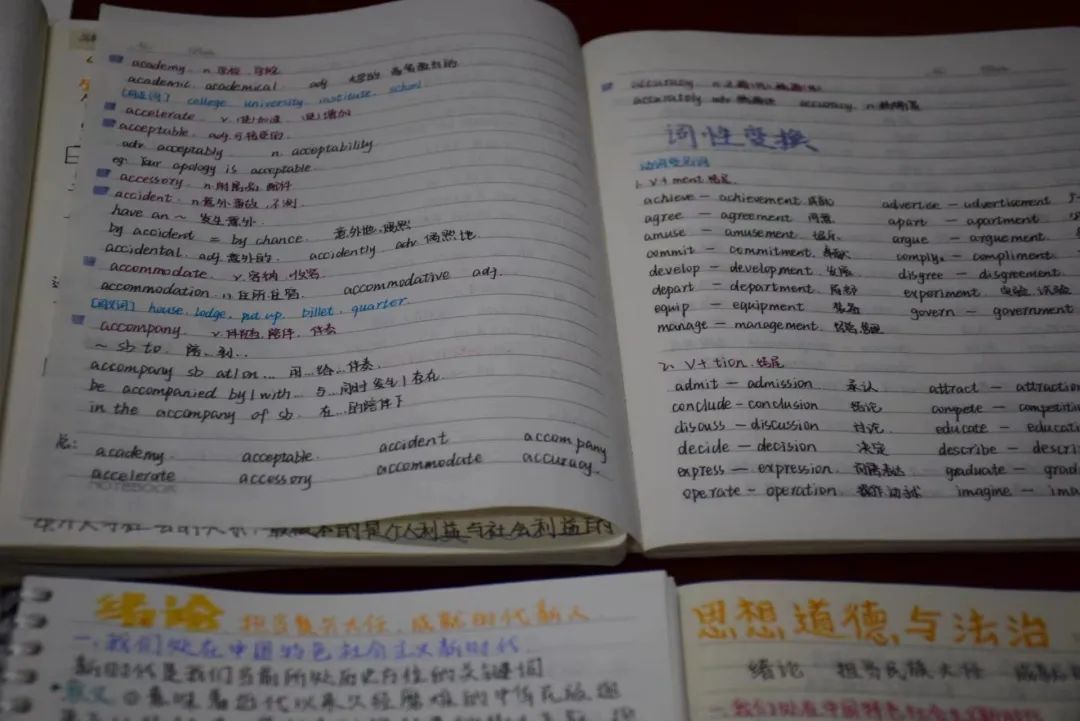 academy. n.学校.学院
academic. academical. adj. 大学的 高等教育的
[同义词] college. university. institute. school.
accelerate. v.(使)加速 (使)增加
acceptable. adj.可接受的.
adv. acceptably n. acceptability
eg. Your apology is acceptable.
accessory. n.附属品.配件
accident. n.意外事故,不测
have an ~ 发生意外.
by accident = by chance. 意外地,偶然
accidental. adj.意外的. accidently adv.偶然地
accommodate. v.容纳.收容
accommodation. n.住所.住宿. accommodative adj.
[同义词] house. lodge. put up. billet. quarter.
accompany. v.伴随.陪伴.伴奏
~ sb to. 陪…到…
accompany sb at/on … 用…给…伴奏.
be accompanied by/with… 与…同时发生/存在.
in the accompany of sb. 在…的陪伴下
总: academy. acceptable. accident accompany
accelerate accessory accommodate accuracy.
NOTEBOOK
个人利益与社会利益的
accuracy
accurately adv. accuracy. n.
词性变换
动词变名词
1. V+ment.结尾
achieve — achievement.成就 advertise — advertisement
agree — agreement 同意 apart — apartment
amuse — amusement.娱乐 argue — arguement.
commit — commitment. comply. — compliment.
develop — development.发展 disgree — disgreement
depart — department.部门 experiment.实验.试验
equip — equipment 装备 govern — government
manage — management.经营.管理
2. V+tion.结尾
admit — admission 承认 attract — attraction
conclude — conclusion 结论 compete — competiti
disouss — disoussion 讨论. educate — educati
decide — decision 决定 describe — descri
express — expression. 表达 graduate — grad
operate — operation. 操作 imagine — ima
绪论 担当复兴大任,成就时代新人
一.我们处在中国特色社会主义新时代
新时代是我们当前所处历史方位的关键词
意味着近代以来久经磨难的中华民族迎
思想道德与法治
绪论 担当民族大任
一.我们处在中国特色